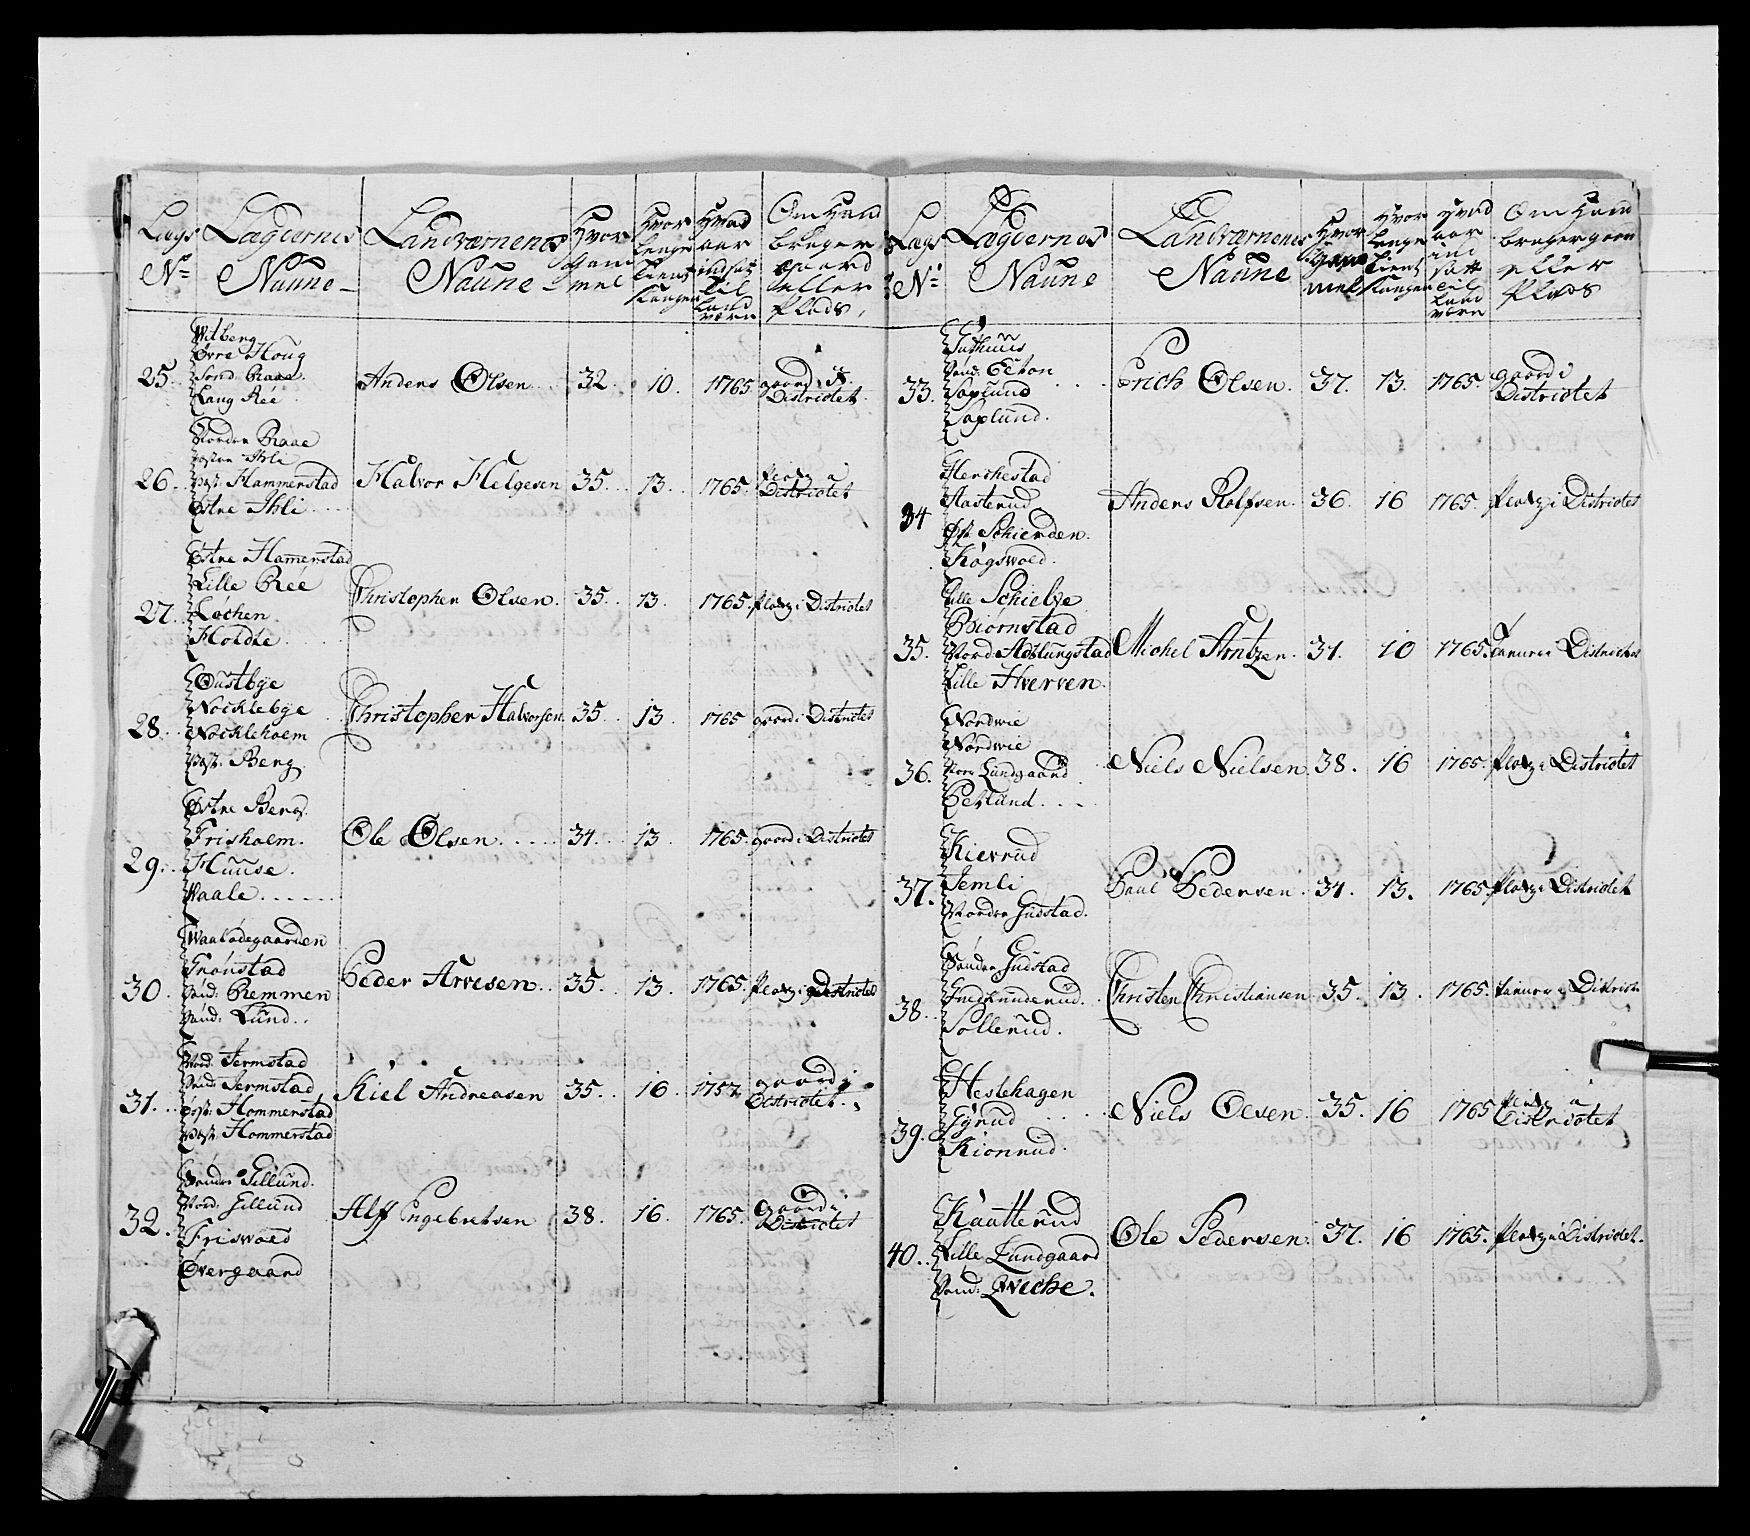 Lægs Nr
Lægdernes Naune
Landværnenes Naune
Hvor Gammel
Hvor lenge tient Kongen
Hvad aar indsat til landværn
Om Hand bruger gaard eller Plads
25. Wilberg
Øvre Houg
Sønd. Raae
Lang Ree
Anders Olsen 32. 10. 1765 gaard i Districtet
26. Nordre Raae
Ihli
Vest. Hammerstad
Østre Ihli
Halvor Helgesen 35. 13. 1765. Plads i Districtet
27. Østre Hamerstad
Lille Ree
Lochen
Holdte
Christopher Olsen. 35. 13. 1765. Plads i Districtet
28. Oustbye
Nocklebye
Nockleholm
Vest. Berg
Christopher Halvorsen 35. 13. 1765 gaard i Districtet
29. Østre Berg
Frisholm.
Huuse.
Waale
Ole Olsen 34. 13. 1765. gaard i Districtet
30. Waalødegaarden
Grønstad
Sønd. Remmen
Sønd. Lund
Peder Arvesen 35. 13. 1765. Plads i Districtet
31. Nord. Jermstad
Sønd. Jermstad
Øost. Hommerstad
Vest. Hommerstad
Kiel Andreasen 35. 16. 1757 gaard i Districtet
32. Søndre Gillund.
Nord. Gillund
Friswold
Overgaard
Alf Engebretsen 38. 16. 1765. Gaard i Districtet
Lægs Nr
Lægdernes Naune
Landværnenes Naune
Hvor Gammel
Hvor lenge tient Kongen
Hvad aar indsatt til land værn
Om Hand bruger gaard eller Plads
33. Sønd. Eeton
Saxlund
Saxlund.
Erich Olsen. 37. 13. 1765. gaard i Districtet
34 Herchestad
Aasterud
Øst. Schierden.
Kogswold.
Anders Rolfsen. 36. 16 1765. Plads i Districtet
35. Lille Schielye
Biørnstad
Nord Adlungstad
Lille Hverven.
Michel Arntzen. 31. 10 1765. i Districtet
36. Nordvie
Nordvie
Lundgaard
Niels Nielsen 38. 16 1765. Plads i Districtet
37. Kierrud
Jemli
Nordre Gudstad.
Paul Pedersen. 34. 13. 1765 Plads i Districtet
38. Søndre Gudstad
Sollerud.
Christen Christiansen 35. 13. 1765. i District
39. Hestehagen
Gyrud
Kionrud.
Niels Olsen. 35. 16 1765 Plads i Districtet
40. Kaatterud
Lille Lundgaard
Sønd. Qveche.
Ole Pedersen. 37. 16 1765. Plads i Districtet.